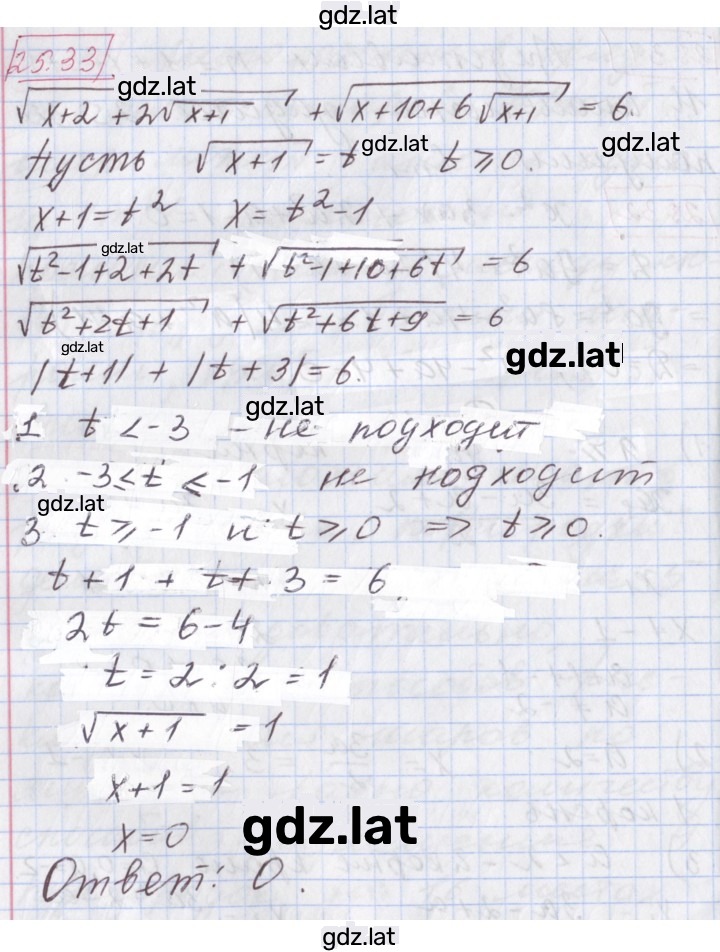 gdz.lat
25.33
gdz.lat
√(x+2+2√(x+1)) + √(x+10+6√(x+1)) = 6.
gdz.lat
Пусть √(x+1) = t t ⩾ 0.
gdz.lat
x+1 = t² x = t²-1
gdz.lat
√(t²-1+2+2t) + √(t²-1+10+6t) = 6
√(t²+2t+1) + √(t²+6t+9) = 6
gdz.lat
gdz.lat
|t+1| + |t+3| = 6.
gdz.lat
1 t < -3 - не подходит
2 -3 ⩽ t ⩽ -1 не подходит
gdz.lat
3. t ⩾ -1 и t ⩾ 0 => t ⩾ 0.
t + 1 + t + 3 = 6
2t = 6-4
t = 2 : 2 = 1
√(x+1) = 1
x+1 = 1
x = 0
gdz.lat
Ответ: 0.
gdz.lat